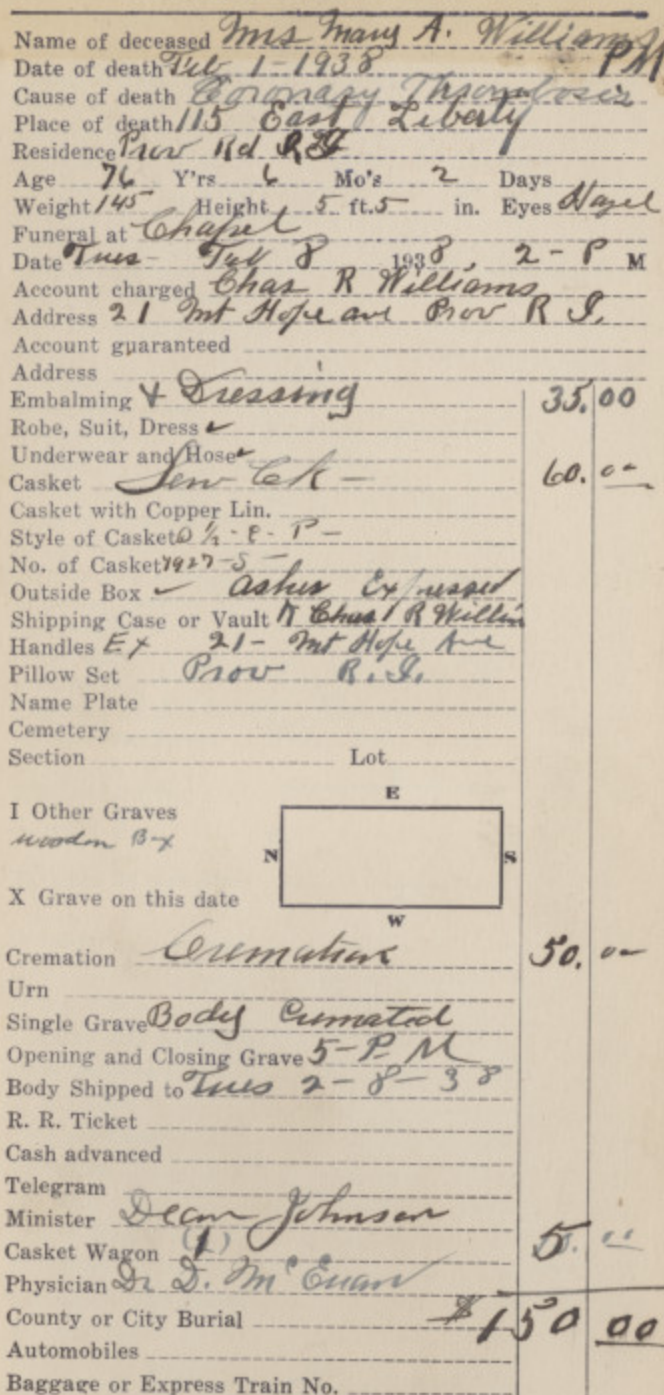 Name of deceased Mrs Mary A. Williams
Date of death Feb 1-1938 PM
Cause of death Coronary Thrombosis
Place of death 115 East Liberty
Residence Prov Rd R I
Age 76 Y'rs 6 Mo's 2 Days
Weight 145 Height 5 ft. 5 in. Eyes Hazel
Funeral at Chapel
Date Tues - Feb 8 1938, 2 - P M
Account charged Chas R Williams
Address 21 Mt Hope ave Prov R I.
Account guaranteed
Address
Embalming & Dressing 35.00
Robe, Suit, Dress ✓
Underwear and Hose ✓
Casket Sew Ck - 60.00
Casket with Copper Lin.
Style of Casket O ½ - E - P -
No. of Casket 7927-S -
Outside Box ✓ ashes Expressed
Shipping Case or Vault Chas R Willim
Handles Ex 21 - Mt Hope Ave
Pillow Set Prov R.I.
Name Plate
Cemetery
Section Lot
E
I Other Graves
wooden Box
N S
X Grave on this date
W
Cremation Cremation 50.00
Urn
Single Grave Body Cremated
Opening and Closing Grave 5-P.M
Body Shipped to Tues 2-8-38
R. R. Ticket
Cash advanced
Telegram
Minister Dean Johnson
Casket Wagon (1) 5.00
Physician Dr D. McEuan
County or City Burial $150 00
Automobiles
Baggage or Express Train No.